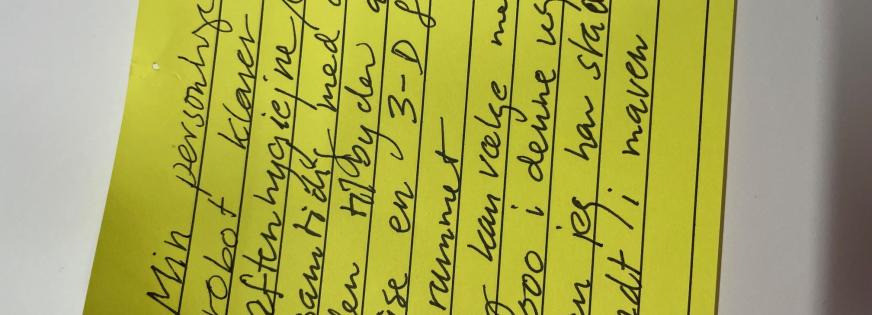 Min personlige
robot klarer
aftenhygiejne
samtidig med
den tilbyder
vise en 3-D
rummet
kan vælge
i denne
jeg har
i maven